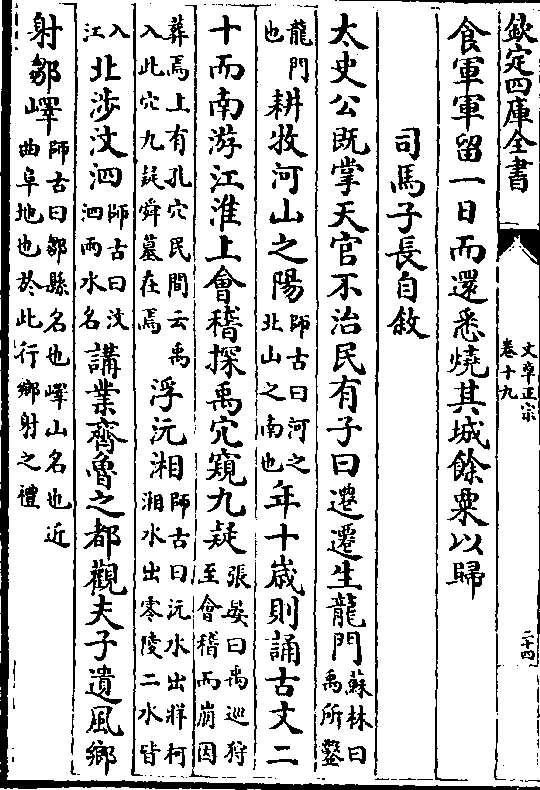 欽定四庫全書
文章正宗
卷十九
二十四
食軍軍留一日而還悉燒其城餘粟以歸
司馬子長自敘
太史公既掌天官不治民有子曰遷遷生龍門蘇林曰禹所鑿
龍門也耕牧河山之陽師古曰河之北山之南也年十歲則誦古文二
十而南游江淮上會稽探禹穴窺九疑張晏曰禹巡狩至會稽而崩因
葬焉上有孔穴民間云禹入此穴九疑舜墓在焉浮沅湘師古曰沅水出牂柯湘水出零陵二水皆
入江北涉汶泗師古曰汶泗兩水名講業齊魯之都觀夫子遺風鄉
射鄒嶧師古曰鄒縣名也嶧山名也近曲阜地也於此行鄉射之禮